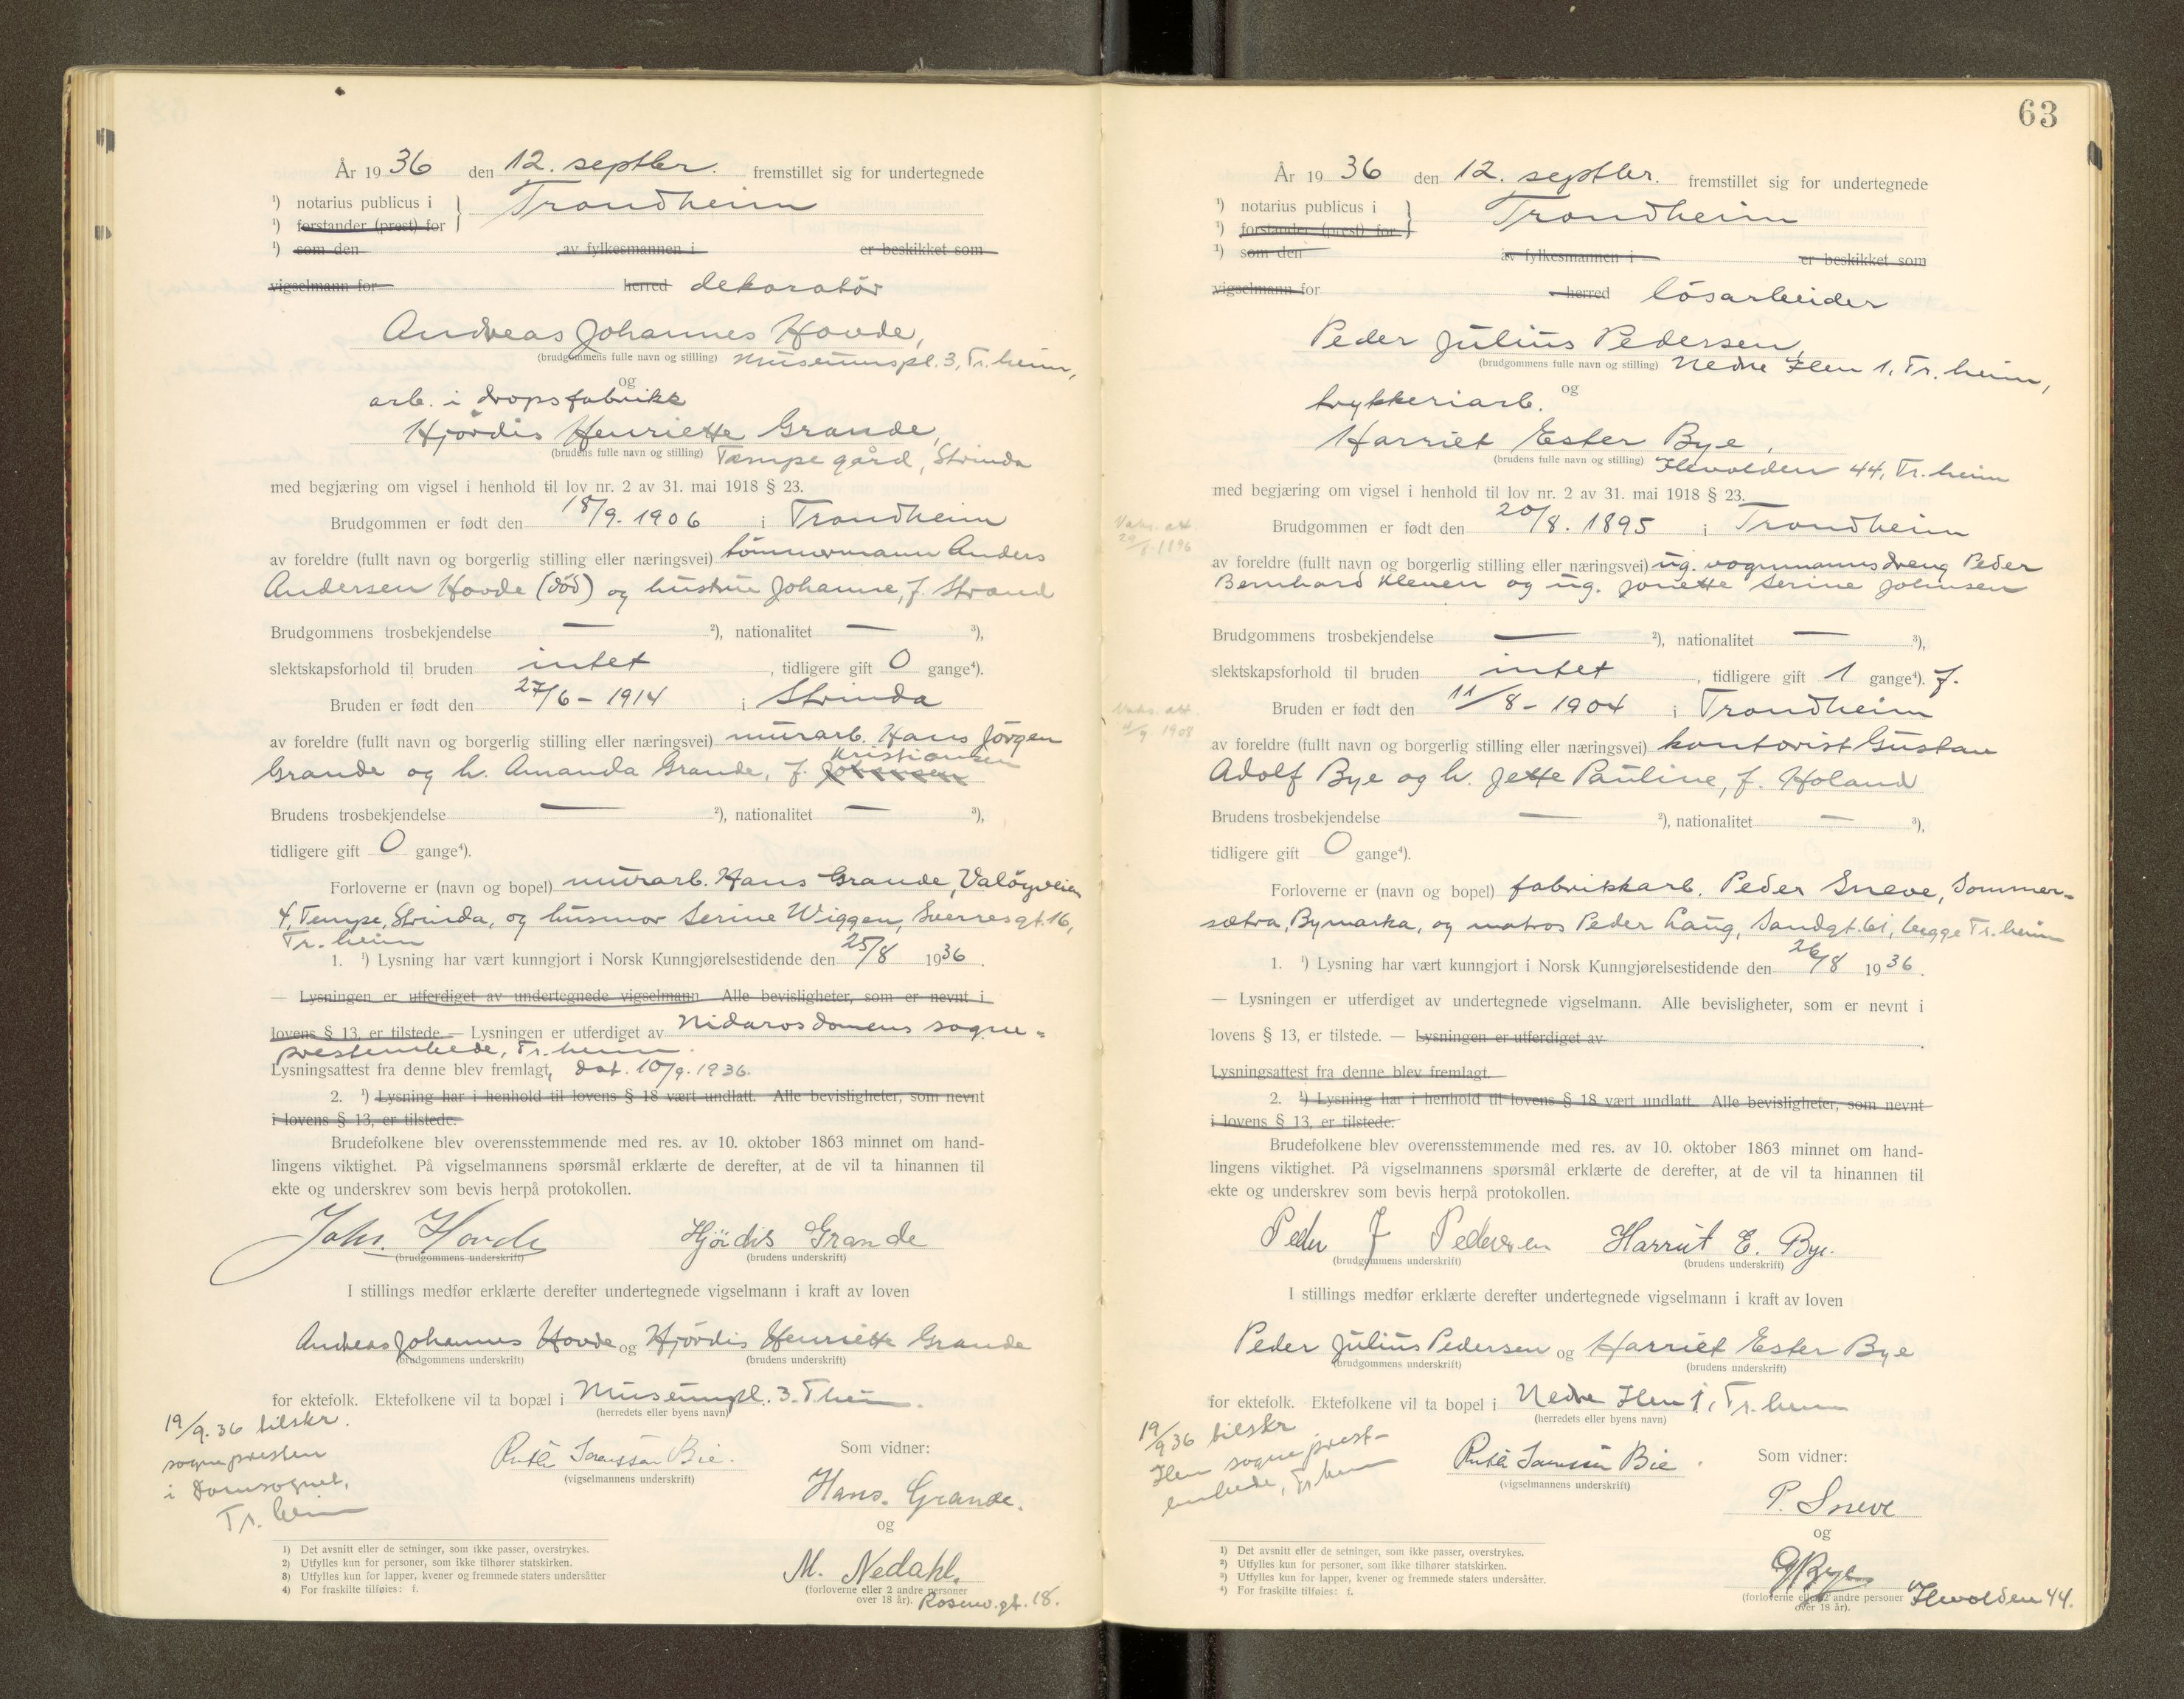 År 1936 den 12. septbr. fremstillet sig for undertegnede
¹) notarius publicus i
¹) forstander (prest) for } Trondheim
¹) som den av fylkesmannen i er beskikket som
vigselmann for herred dekoratör
Andreas Johannes Hovde,
(brudgommens fulle navn og stilling) Museumspl. 3, Tr.heim,
og
arb. i dropsfabrikk
Hjördis Henriette Grande,
(brudens fulle navn og stilling) Tempe gård, Strinda
med begjæring om vigsel i henhold til lov nr. 2 av 31. mai 1918 § 23.
Brudgommen er født den 18/9. 1906 i Trondheim
av foreldre (fullt navn og borgerlig stilling eller næringsvei) tömmermann Anders
Andersen Hovde (död) og hustru Johanne, f. Strand
Brudgommens trosbekjendelse — ²), nationalitet — ³),
slektskapsforhold til bruden intet, tidligere gift 0 gange⁴).
Bruden er født den 27/6 - 1914 i Strinda
av foreldre (fullt navn og borgerlig stilling eller næringsvei) murarb. Hans Jörgen
Kristiansen
Grande og h. Amanda Grande, f.
Brudens trosbekjendelse — ²), nationalitet — ³),
tidligere gift 0 gange⁴).
Forloverne er (navn og bopel) murarb. Hans Grande, Valöyveien
4, Tempe, Strinda, og husmor Serine Wiggen, Sverresgt. 16,
Tr.heim
1. ¹) Lysning har vært kunngjort i Norsk Kunngjørelsestidende den 25/8 1936.
— Lysningen er utferdiget av undertegnede vigselmann Alle bevisligheter, som er nevnt i
lovens § 13, er tilstede. — Lysningen er utferdiget av Nidarosdomens sogne-
prestembede, Tr.heim.
Lysningsattest fra denne blev fremlagt, dat. 10/9. 1936.
2. ¹) Lysning har i henhold til lovens § 18 vært undlatt. Alle bevisligheter, som nevnt
i lovens § 13, er tilstede.
Brudefolkene blev overensstemmende med res. av 10. oktober 1863 minnet om hand-
lingens viktighet. På vigselmannens spørsmål erklærte de derefter, at de vil ta hinannen til
ekte og underskrev som bevis herpå protokollen.
Johs. Hovde Hjördis Grande
(brudgommens underskrift) (brudens underskrift)
I stillings medfør erklærte derefter undertegnede vigselmann i kraft av loven
Andreas Johannes Hovde og Hjördis Henriette Grande
(brudgommens underskrift) (brudens underskrift)
for ektefolk. Ektefolkene vil ta bopæl i Museumspl. 3. Tr.heim.
(herredets eller byens navn)
19/9. 36 tilskr.
sognepresten
i Domsognet,
Tr.heim
Ruth Sorenssen Bie.
(vigselmannens underskrift)
Som vidner:
Hans. Grande.
og
M. Nedahl.
(forloverne eller 2 andre personer
over 18 år). Rosenb.gt. 18.
1) Det avsnitt eller de setninger, som ikke passer, overstrykes.
2) Utfylles kun for personer, som ikke tilhører statskirken.
3) Utfylles kun for lapper, kvener og fremmede staters undersåtter
4) For fraskilte tilføies: f.
63
År 1936 den 12. septbr. fremstillet sig for undertegnede
¹) notarius publicus i
¹) forstander (prest) for } Trondheim
¹) som den av fylkesmannen i er beskikket som
vigselmann for herred lösarbeider
Peder Julius Pedersen,
(brudgommens fulle navn og stilling) Nedre Ilen 1, Tr.heim,
og
trykkeriarb.
Harriet Ester Bye,
(brudens fulle navn og stilling) Ilevolden 44, Tr.heim
med begjæring om vigsel i henhold til lov nr. 2 av 31. mai 1918 § 23.
Vaks. att.
29/8. 1896
Brudgommen er født den 20/8. 1895 i Trondheim
av foreldre (fullt navn og borgerlig stilling eller næringsvei) ug. vognmannsdreng Peder
Bernhard Kleven og ug. Jonette Serine Johnsen
Brudgommens trosbekjendelse — ²), nationalitet — ³),
slektskapsforhold til bruden intet, tidligere gift 1 gange⁴). f.
Vaks. att.
4/9 1908
Bruden er født den 11/8 - 1904 i Trondheim
av foreldre (fullt navn og borgerlig stilling eller næringsvei) kontorist Gustav
Adolf Bye og h. Jette Pauline, f. Holand
Brudens trosbekjendelse — ²), nationalitet — ³),
tidligere gift 0 gange⁴).
Forloverne er (navn og bopel) fabrikkarb. Peder Sneve, Sommer-
sætra, Bymarka, og matros Peder Laug, Sandgt. 61, begge Tr.heim
1. ¹) Lysning har vært kunngjort i Norsk Kunngjørelsestidende den 26/8 1936.
— Lysningen er utferdiget av undertegnede vigselmann. Alle bevisligheter, som er nevnt i
lovens § 13, er tilstede. — Lysningen er utferdiget av
Lysningsattest fra denne blev fremlagt.
2. ¹) Lysning har i henhold til lovens § 18 vært undlatt Alle bevisligheter, som nevnt
i lovens § 13, er tilstede.
Brudefolkene blev overensstemmende med res. av 10. oktober 1863 minnet om hand-
lingens viktighet. På vigselmannens spørsmål erklærte de derefter, at de vil ta hinannen til
ekte og underskrev som bevis herpå protokollen.
Peder J Pedersen Harriet E. Bye.
(brudgommens underskrift) (brudens underskrift)
I stillings medfør erklærte derefter undertegnede vigselmann i kraft av loven
Peder Julius Pedersen og Harriet Ester Bye
(brudgommens underskrift) (brudens underskrift)
for ektefolk. Ektefolkene vil ta bopel i Nedre Ilen 1, Tr.heim
(herredets eller byens navn)
19/9 36 tilskr
Ilen sogneprest-
embede, Tr.heim
Ruth Sorenssen Bie.
(vigselmannens underskrift)
Som vidner:
P. Sneve
og
G Bye
(forloverne eller 2 andre personer
over 18 år). Ilevolden 44.
¹) Det avsnitt eller de setninger, som ikke passer, overstrykes.
²) Utfylles kun for personer, som ikke tilhører statskirken.
³) Utfylles kun for lapper, kvener og fremmede staters undersåtter.
⁴) For fraskilte tilføies: f.